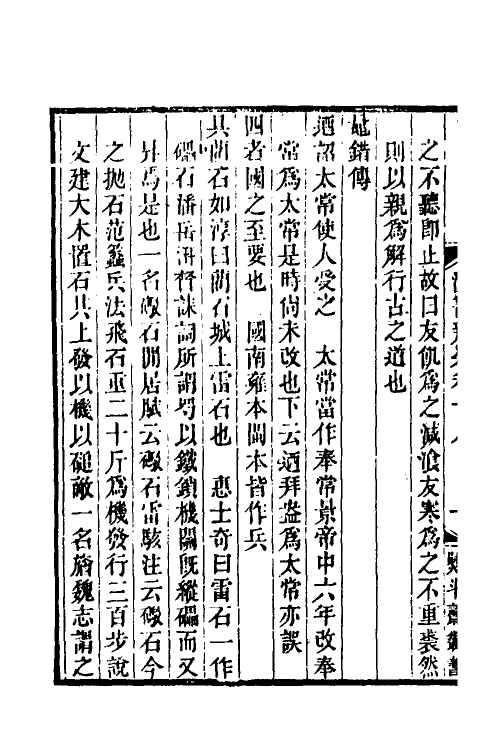 之不聽卽止故曰友飢爲之減飡友寒爲之不重裘然
則以親爲解行古之道也
鼂錯傳
迺詔太常使人受之　太常當作奉常景帝中六年改奉
常爲太常是時尙未改也下云迺拜盎爲太常亦誤
四者國之至要也　國南雍本閩本皆作兵
具藺石如淳曰藺石城上雷石也　惠士奇曰雷石一作
礧石潘岳汧督誄詞所謂罸以鐵鎖機關旣縱礧而又
升焉是也一名礮石閒居賦云礮石雷駭注云礮石今
之抛石范蠡兵法飛石重二十斤爲機發行三百步說
文建大木置石其上發以機以磓敵一名旝魏志謂之